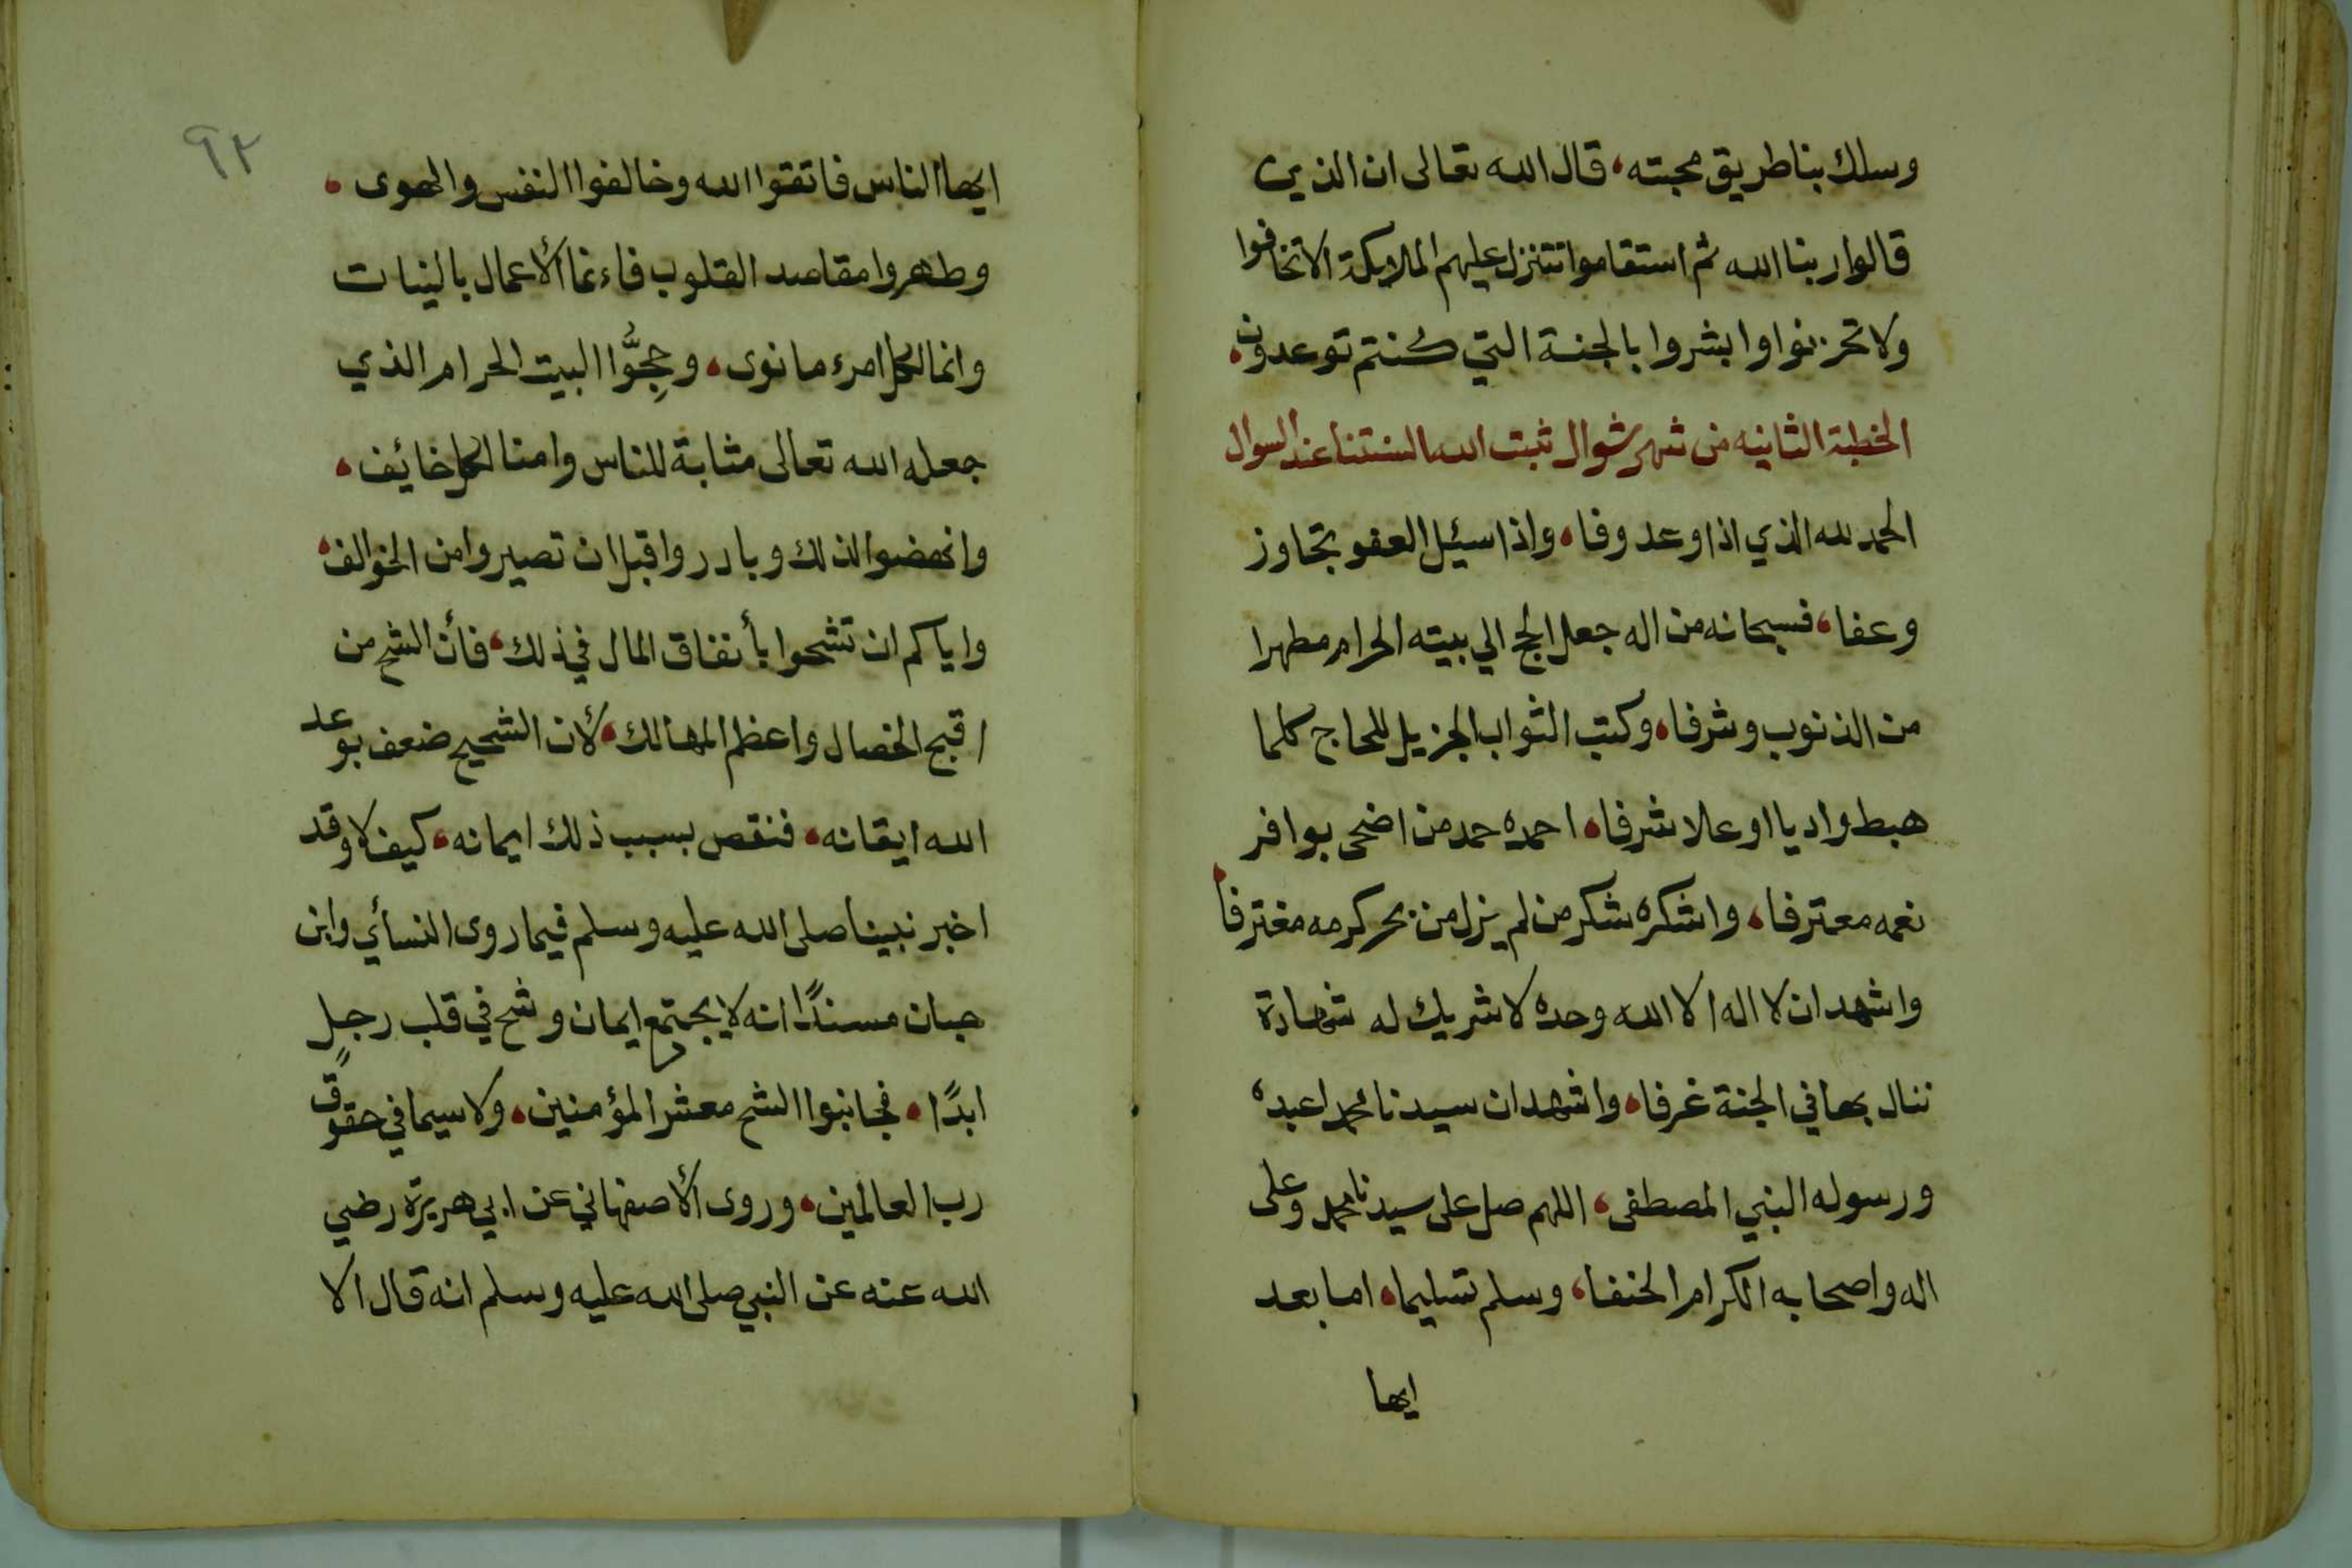 وسلك بنا طريق محبته، قال الله تعالى ان الذين
قالوا ربنا الله ثم استقاموا تتنزل عليهم الملايكة الا تخافوا
ولا تحزنوا وابشروا بالجنة التي كنتم توعدون،
الخطبة الثانيه من شهر شوال ثبت الله السنتنا عند السوال
الحمد لله الذي اذا وعد وفا، واذا سئيل العفو تجاوز
وعفا، فسبحانه من اله جعل الحج الي بيته الحرام مطهرا
من الذنوب وشرفا، وكتب الثواب الجزيل للحاج كلما
هبط واديا او علا شرفا، احمده حمد من اضحى بوافر
نعمه معترفا، واشكره شكر من لم يزل من بحر كرمه مغترفا،
واشهد ان لا اله الا الله وحده لا شريك له شهادة
ننال بها في الجنة غرفا، واشهد ان سيدنا محمدا عبده
ورسوله النبي المصطفى، اللهم صل على سيدنا محمد وعلى
اله واصحابه الكرام الحنفا، وسلم تسليما، اما بعد
ايها
٩٢
ايها الناس فاتقوا الله وخالفوا النفس والهوى،
وطهروا مقاصد القلوب فاءنما الأعمال بالنيات
وانما لكل امرء ما نوى، وحِجُّوا البيت الحرام الذي
جعله الله تعالى مثابة للناس وامنا لكل خائيف،
وانهضوا لذلك وبادروا قبل ان تصيروا من الخوالف،
واياكم ان تشحوا بأنفاق المال في ذلك، فأن الشح من
اقبح الخصال واعظم المهالك، لأن الشحيح ضعف بوعد
الله ايقانه، فنقص بسبب ذلك ايمانه، كيف لا وقد
اخبر نبينا صلى الله عليه وسلم فيما روى النسأي وابن
حبان مسندًا انه لا يجتمع ايمان وشح في قلب رجلٍ
ابدًا، فجانبوا الشح معشر المؤمنين، ولا سيما في حقوق
رب العالمين، وروى الأصفهاني عن ابي هريرة رضي
الله عنه عن النبي صلى الله عليه وسلم انه قال الا